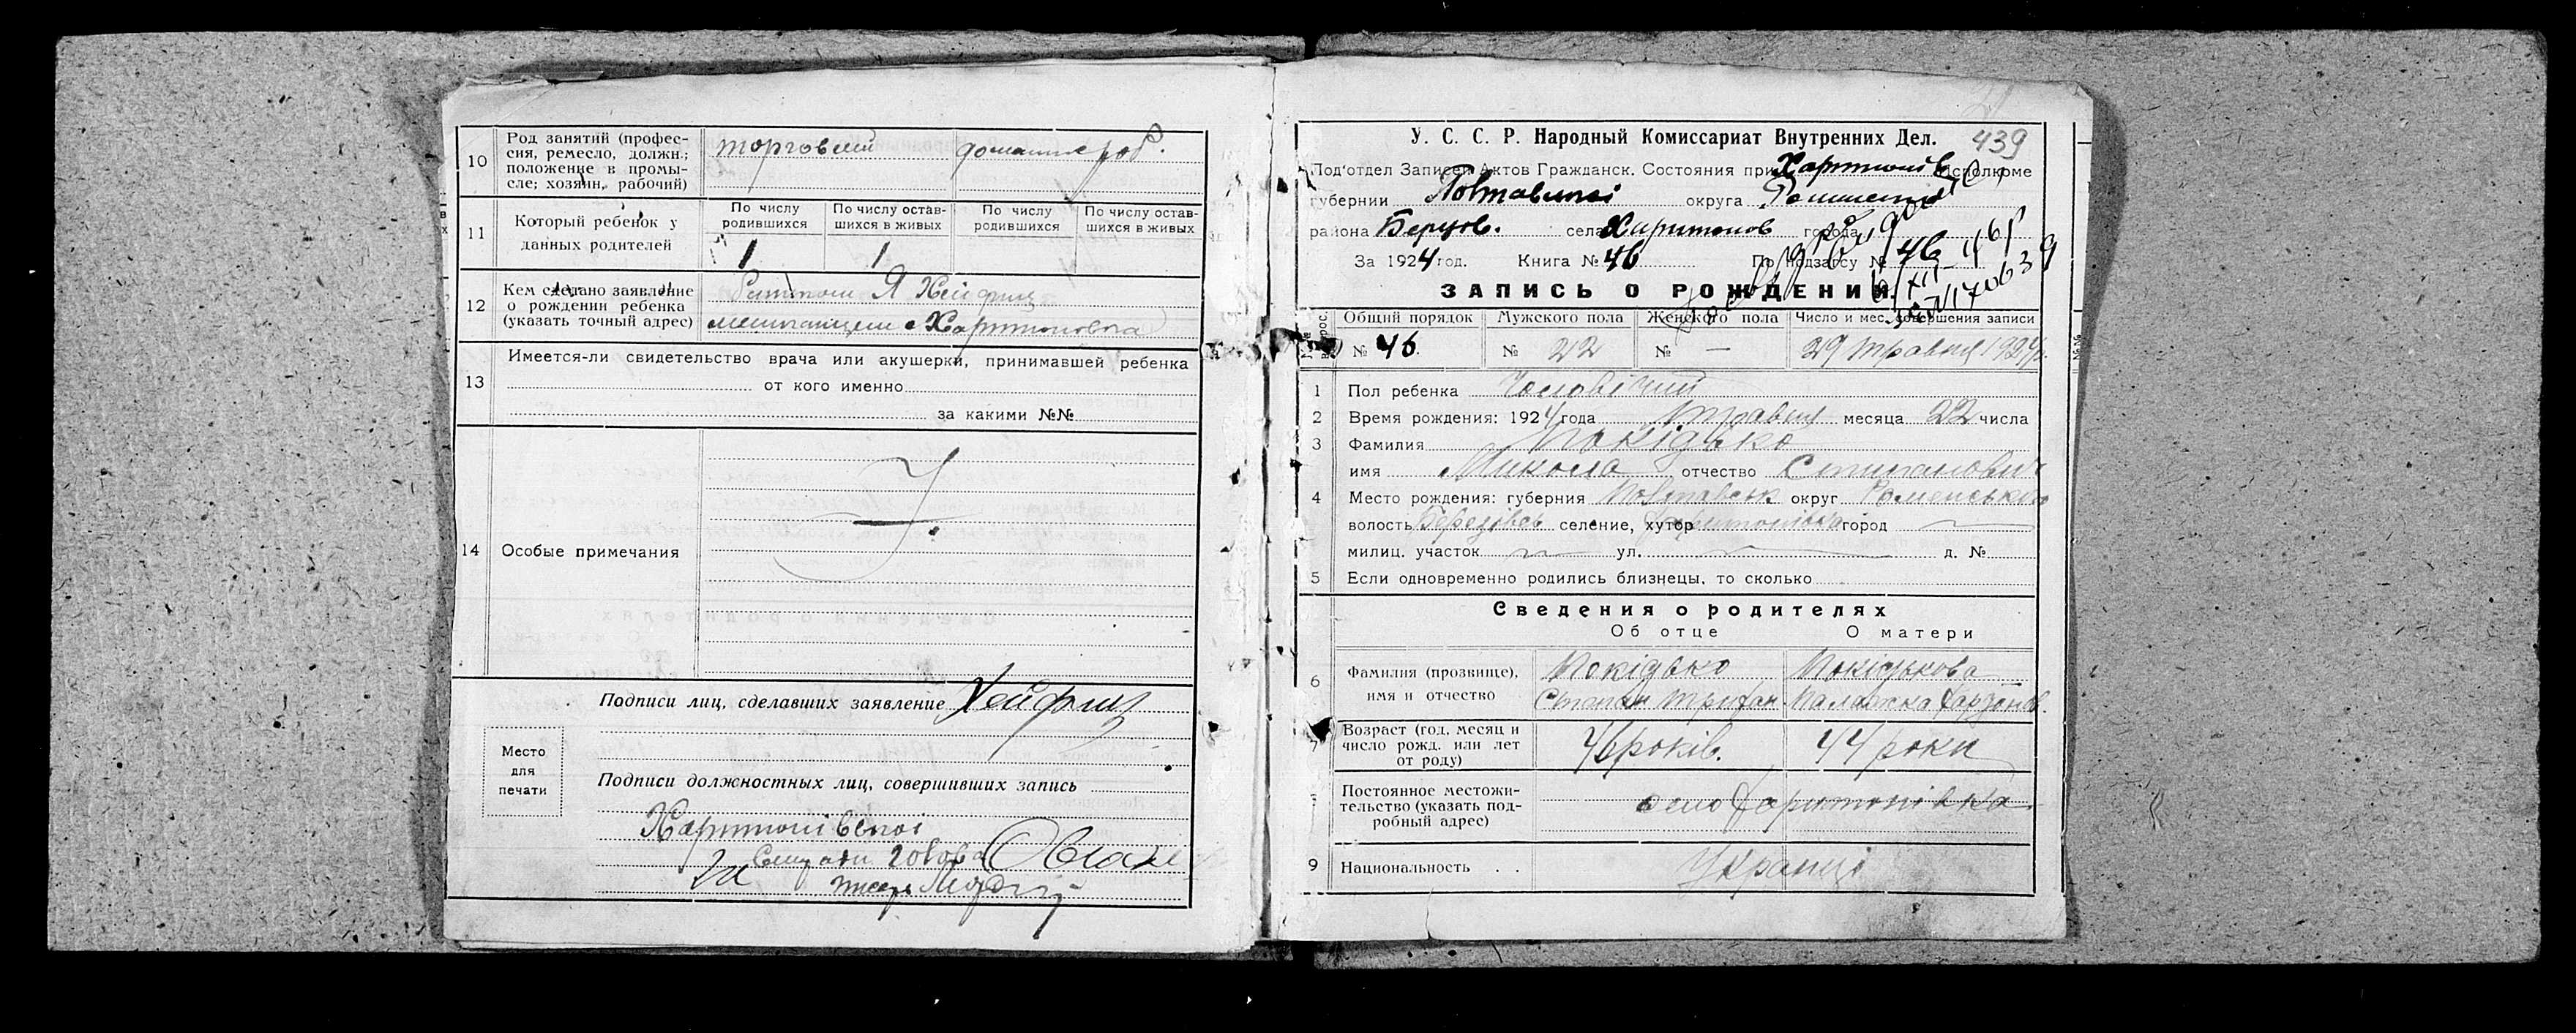 10 Род занятий (профес-
сия, ремесло, должн.;
положение в промы-
сле; хозяин, рабочий)
торговый
домашне роб.
11 Который ребенок у
данных родителей
По числу родившихся
По числу остав-
шихся в живых
По числу родившихся
По числу остав-
шихся в живых
1 1
12 Кем сделано заявление
о рождении ребенка
(указать точный адрес)
Я Хейфиц
13 Имеется-ли свидетельство врача или акушерки, принимавшей ребенка
от кого именно
за какими №№
14 Особые примечания
Подписи лиц, сделавших заявление Хейфиц
Место
для
печати
Подписи должностных лиц, совершивших запись
Харитонівської
голова
За
439
У. С. С. Р. Народный Комиссариат Внутренних Дел.
Под'отдел Записей Актов Гражданск. Состояния при Харитонів Исполкоме
губернии Полтавської округа
района села Харитонов города
За 1924 год. Книга № 46 По подзагсу № 46
ЗАПИСЬ О РОЖДЕНИИ.
№№ вопрос.
Общий порядок
Мужского пола
Женского пола
Число и мес. совершения записи
№ 46.
№ 22
№ —
29 травня 1924р.
1 Пол ребенка Чоловічий
2 Время рождения: 1924 года травня месяца 22 числа
3 Фамилия Покідько
имя Микола отчество Степанович
4 Место рождения: губерния Полтавськ округ Роменського
волость Березівсь селение, хутор Харитонівка город —
милиц. участок — ул. — д. №
5 Если одновременно родились близнецы, то сколько
Сведения о родителях
Об отце
О матери
6 Фамилия (прозвище),
имя и отчество
Покідько
Степан Трифон
Покідькова
Палажка
7 Возраст (год, месяц и
число рожд. или лет
от роду)
46 років.
44 роки
Постоянное местожи-
тельство (указать под-
робный адрес)
село Харитонівка.
9 Национальность . . Українці